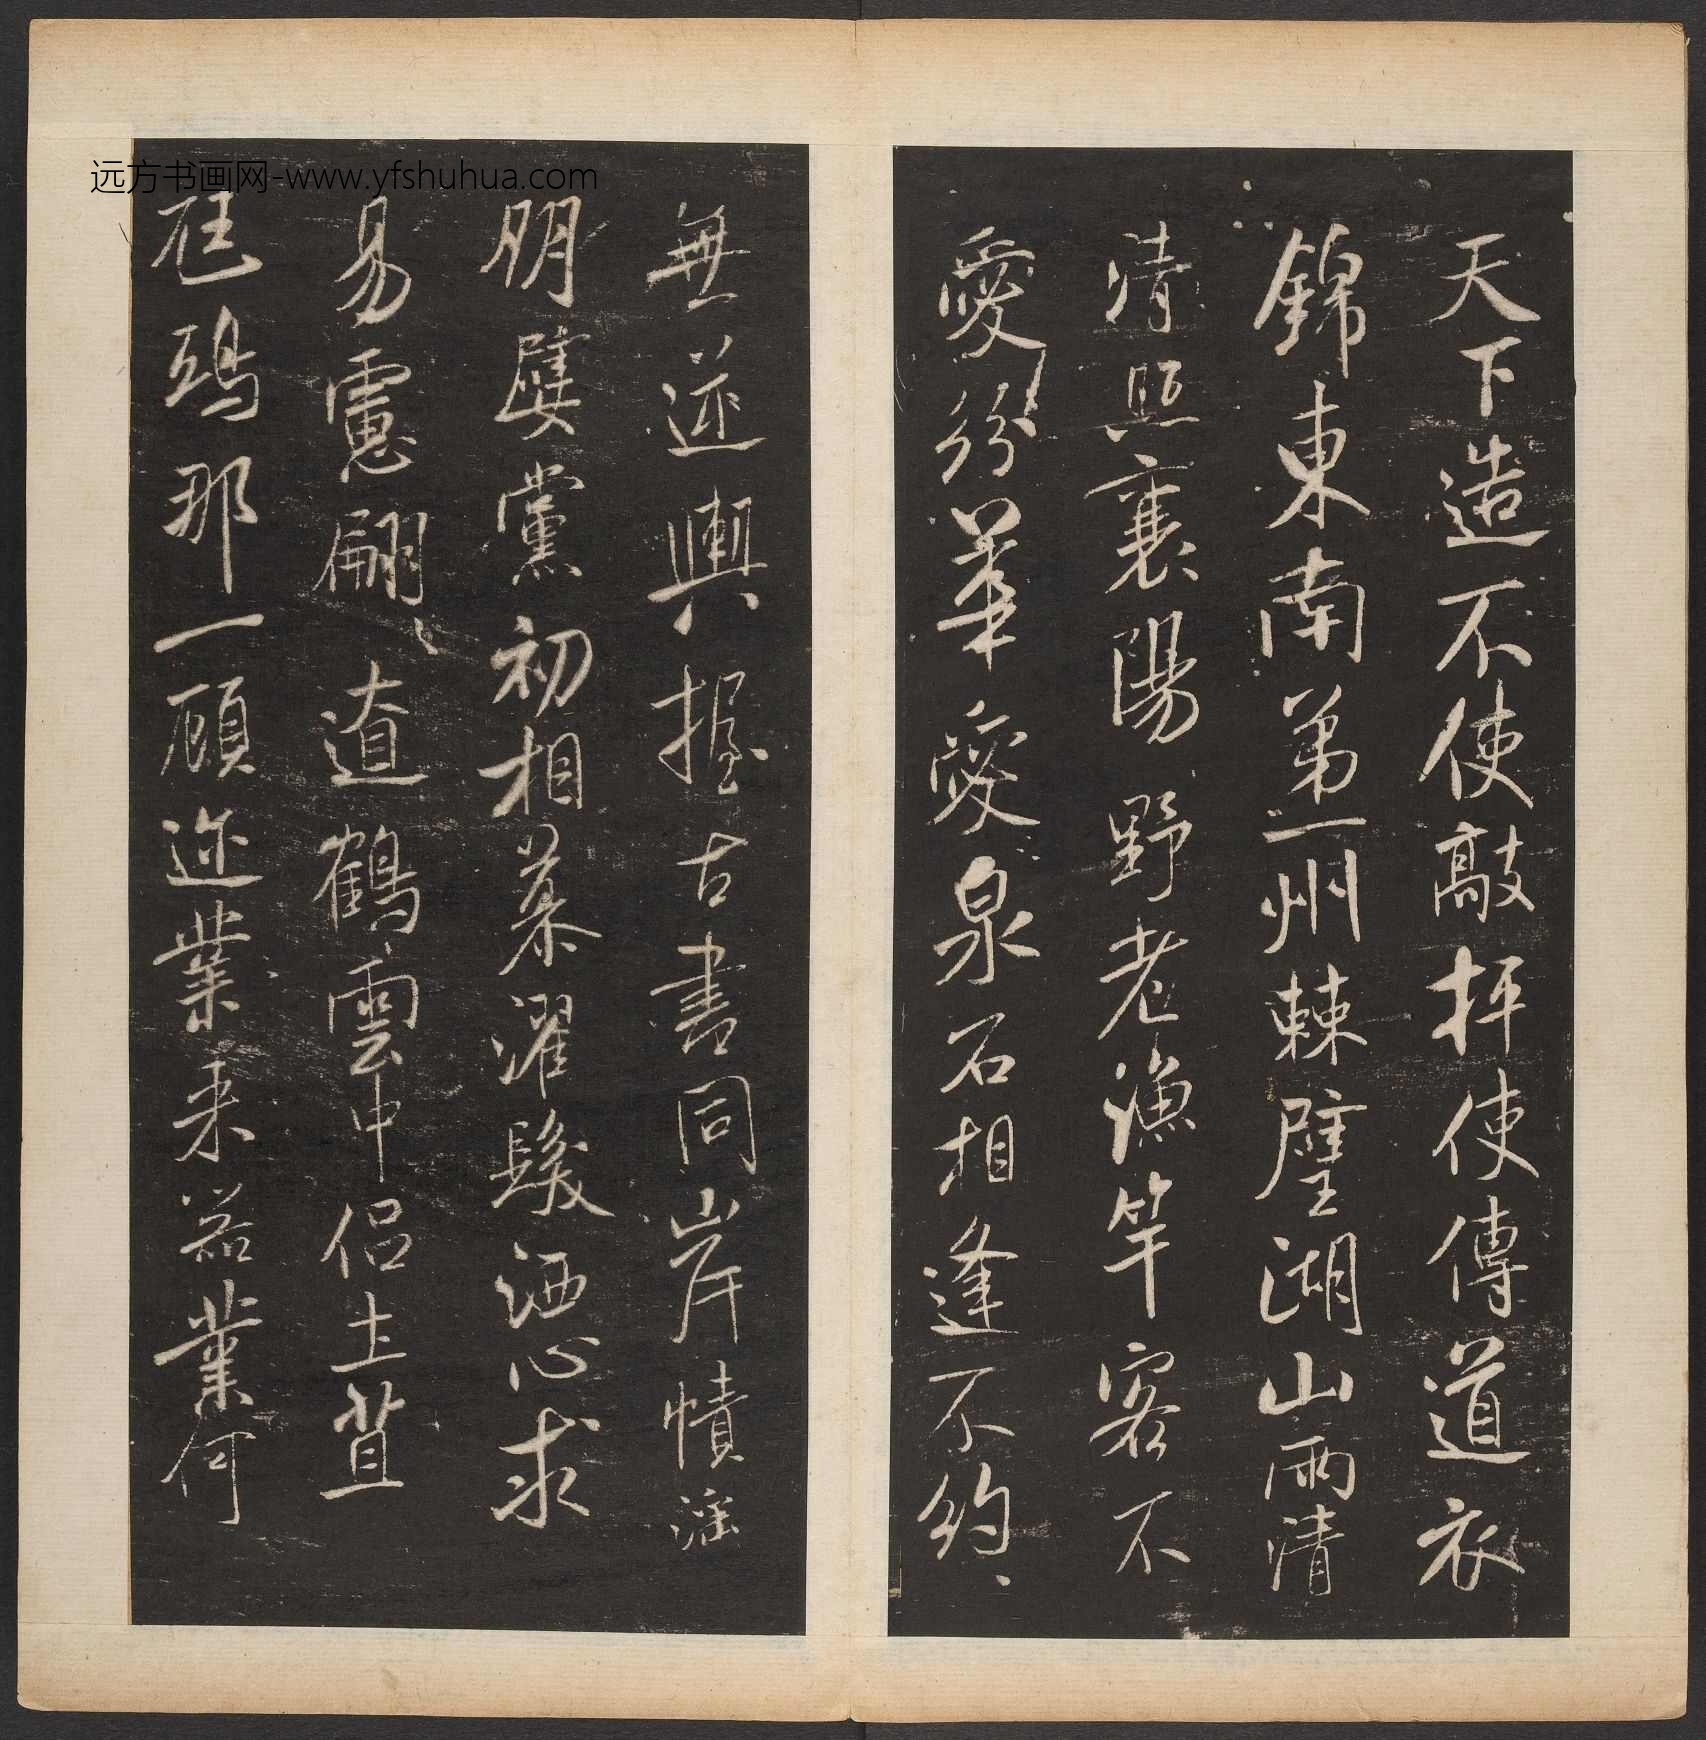 天下造不使敲枰使傳道衣
錦東南第一州棘璧湖山兩清
清照襄陽野老漁竿客不
愛紛華愛泉石相逢不約
無逆輿握古書同岸幘淫
朋嬖黨初相慕濯髮洒心求
易慮翩々遼鶴雲中侶土苴
尫鴟那一顧邇業來器業何
远方书画网-www.yfshuhua.com